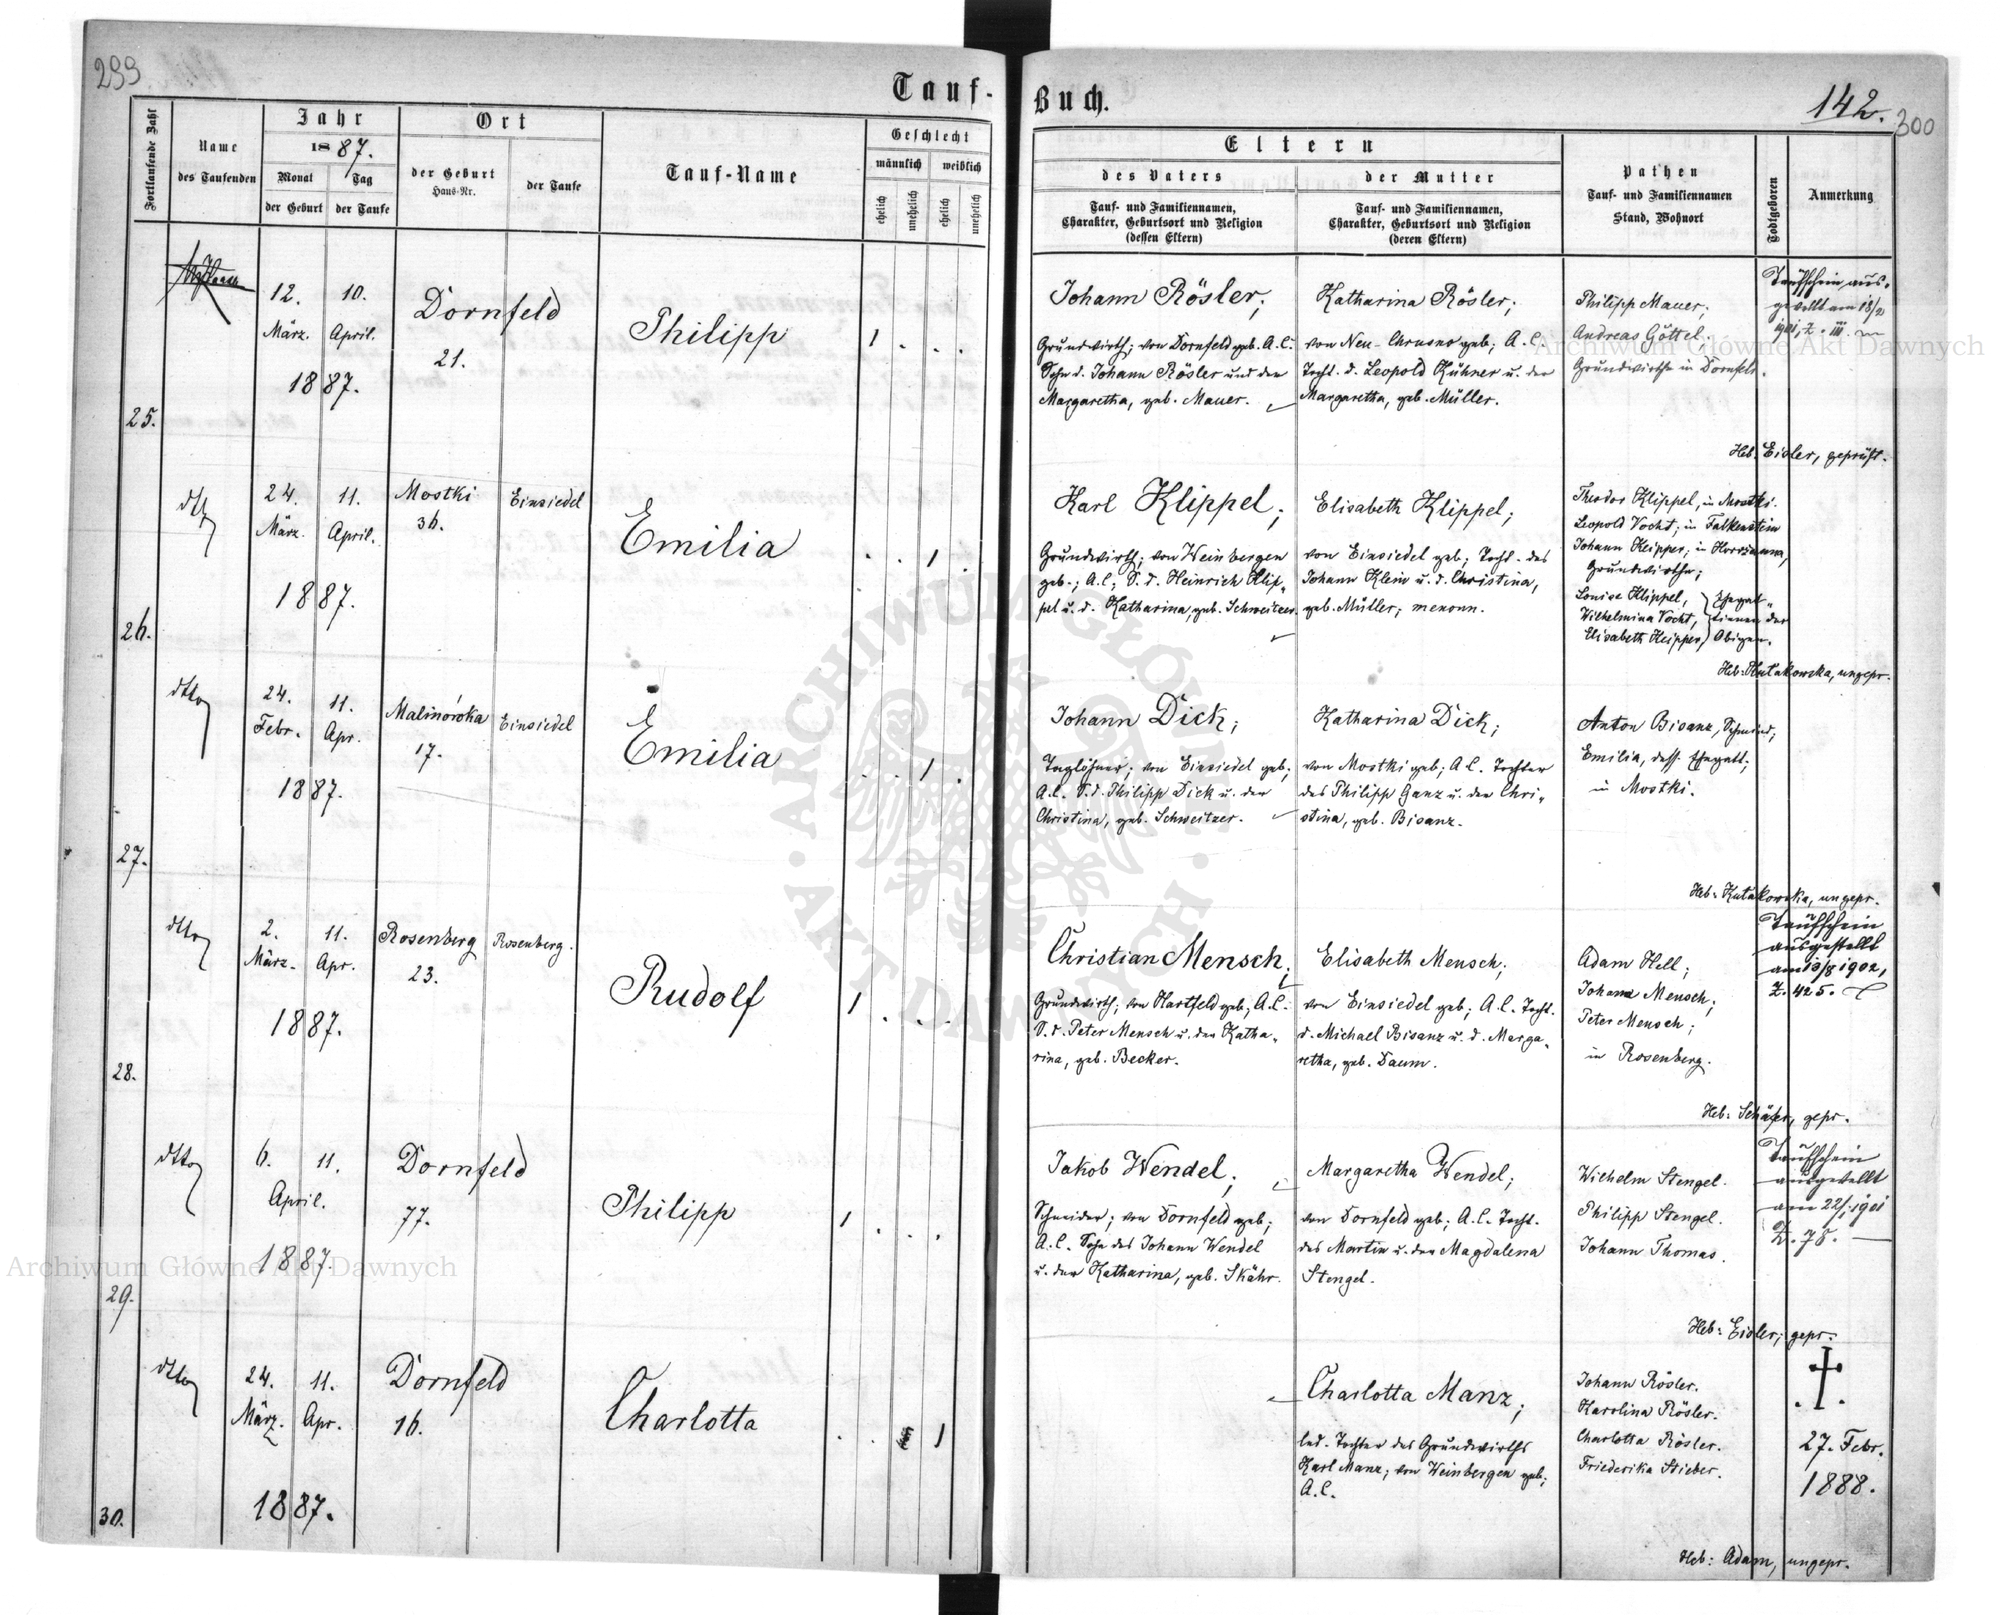 299
Tauf-Buch.
142.
300
Fortlaufende Zahl
Name
des Taufenden
Jahr
1887.
Monat
Tag
der Geburt
der Taufe
Ort
der Geburt
Haus-Nr.
der Taufe
Tauf-Name
Geschlecht
männlich
weiblich
ehelich
unehelich
ehelich
unehelich
Eltern
des Vaters
Tauf- und Familiennamen,
Charakter, Geburtsort und Religion
(dessen Eltern)
der Mutter
Tauf- und Familiennamen,
Charakter, Geburtsort und Religion
(deren Eltern)
Pathen
Tauf- und Familiennamen
Stand, Wohnort
Todtgeboren
Anmerkung
25.
12.
März.
10.
April.
1887.
Dornfeld
21.
Philipp
1 . . .
Johann Rösler;
Grundwirth; von Dornfeld geb. A.C.
Sohn d. Johann Rösler und der
Margaretha, geb. Mauer.
Katharina Rösler;
von Neu-Chrusno geb; A.C.
Tocht. d. Leopold Kühner u. der
Margaretha, geb. Müller.
Philipp Mauer;
Andreas Göttel;
Grundwirthe in Dornfeld.
Taufschein aus-
gestellt am 18/2
1901, Z. III.
Heb: Eisler, geprüft.
26.
dtto
24.
März.
11.
April.
1887.
Mostki
36.
Einsiedel
Emilia
. . 1 .
Karl Klippel;
Grundwirth; von Weinbergen
geb.; A.C; S. d. Heinrich Klip-
pel u. d. Katharina, geb. Schweitzer.
Elisabeth Klippel;
von Einsiedel geb; Tocht. des
Johann Klein u. d. Christina,
geb. Müller; menonn.
Theodor Klippel, in Mostki.
Leopold Vocht; in Falkenstein
Johann Keipper; in Horozanna,
Grundwirthe;
Louise Klippel,
Wilhelmina Vocht,
Elisabeth Keipper,
Ehegat-
tinnen der
Obigen.
Heb: Kutakowska, ungepr.
27.
dtto
24.
Febr.
11.
Apr.
1887.
Malinówka
17.
Einsiedel
Emilia
. . 1 .
Johann Dick;
Taglöhner; von Einsiedel geb;
A.C. S. d. Philipp Dick u. der
Christina, geb. Schweitzer.
Katharina Dick;
von Mostki geb; A.C. Tochter
des Philipp Ganz u. der Chri-
stina, geb. Bisanz.
Anton Bisanz, Schmied;
Emilia, dess. Ehegatt;
in Mostki.
Heb: Kutakowska, ungepr.
28.
dtto
2.
März.
11.
Apr.
1887.
Rosenberg
23.
Rosenberg.
Rudolf
1 . . .
Christian Mensch;
Grundwirth; von Hartfeld geb; A.C.
S. d. Peter Mensch u. der Katha-
rina, geb. Becker.
Elisabeth Mensch;
von Einsiedel geb; A.C. Tocht.
d. Michael Bisanz u. d. Marga-
retha, geb. Daum.
Adam Hell;
Johann Mensch;
Peter Mensch;
in Rosenberg.
Taufschein
ausgestellt
am 13/8 1902,
Z. 425.
Heb: Schäfer, gepr.
29.
dtto
6.
11.
April.
1887.
Dornfeld
77.
Philipp
1 . . .
Jakob Wendel;
Schneider; von Dornfeld geb;
A.C. Sohn des Johann Wendel
u. der Katharina, geb. Skähr.
Margaretha Wendel;
von Dornfeld geb; A.C. Tocht.
des Martin u. der Magdalena
Stengel.
Wilhelm Stengel.
Philipp Stengel.
Johann Thomas.
Taufschein
ausgestellt
am 22/1 1901
Z. 78.
Heb: Eisler; gepr.
30.
dtto
24.
März.
11.
Apr.
1887.
Dornfeld
16.
Charlotta
. . 1
Charlotta Manz;
led. Tochter des Grundwirths
Karl Manz; von Weinbergen geb;
A.C.
Johann Rösler.
Karolina Rösler.
Charlotta Rösler.
Friederika Stieber.
27. Febr.
1888.
Heb: Adam, ungepr.
Archiwum Główne Akt Dawnych
Archiwum Główne Akt Dawnych
ARCHIWUM GŁÓWNE · AKT DAWNYCH ·